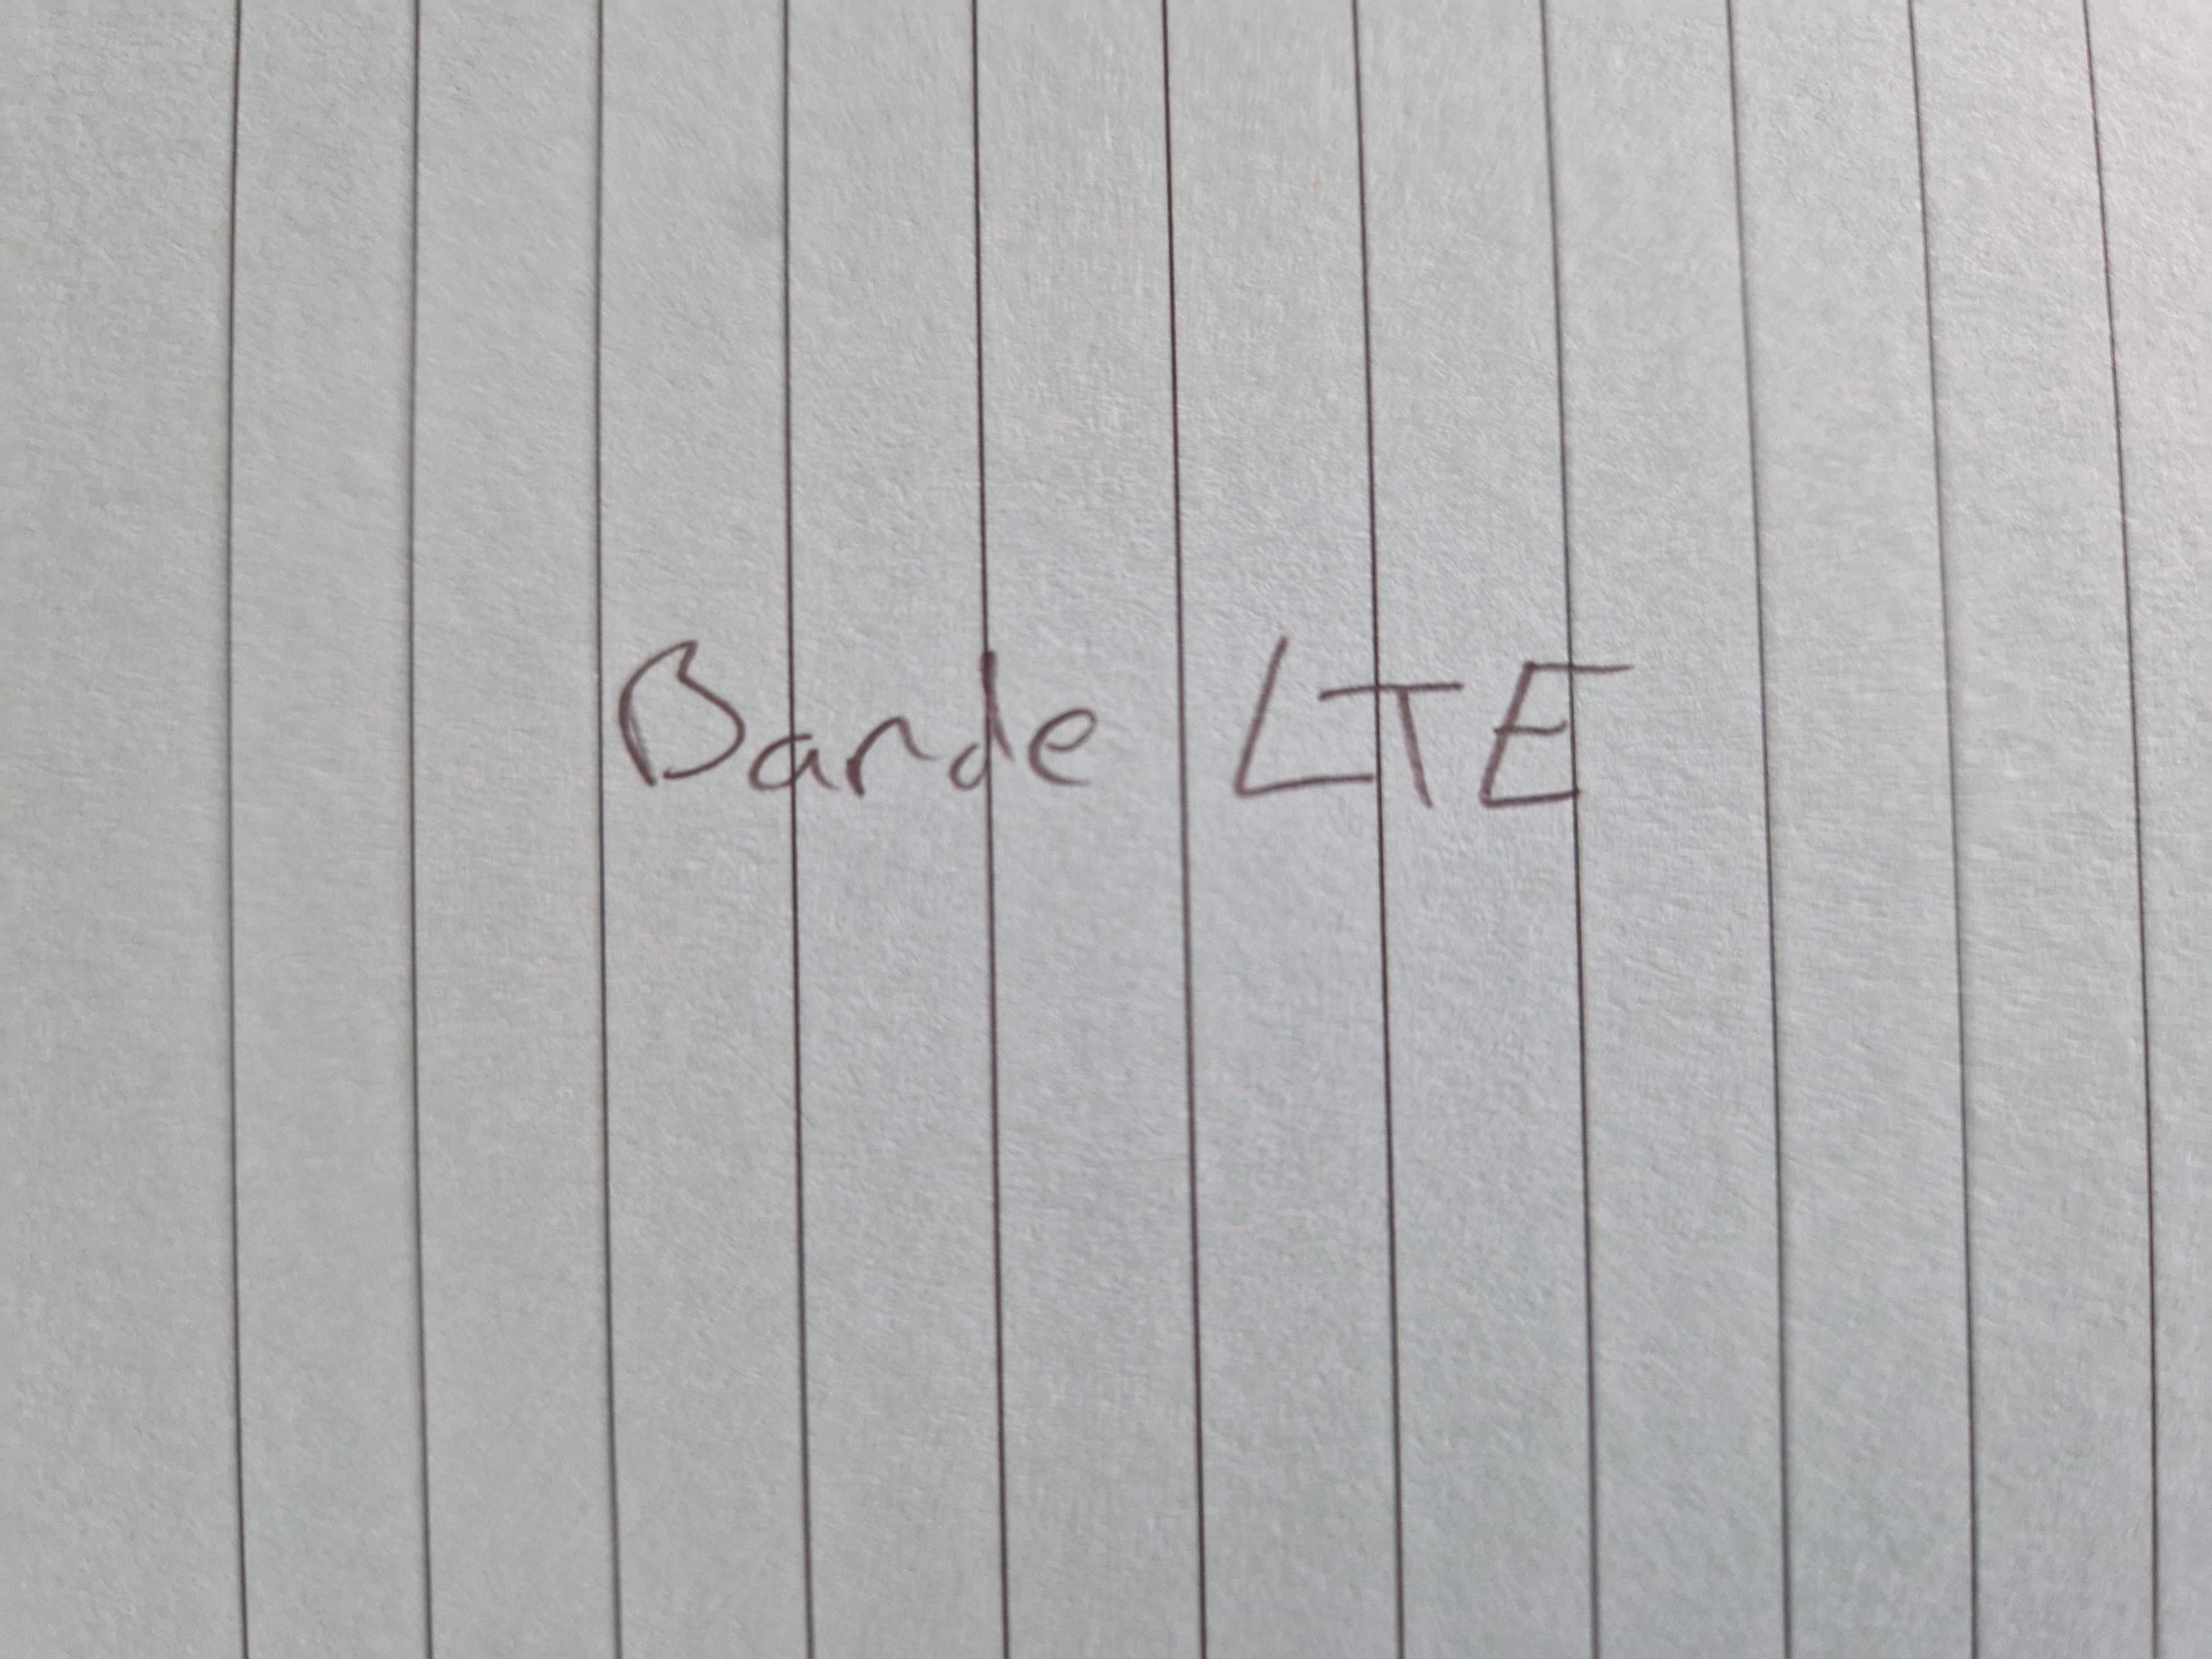 Bande LTE